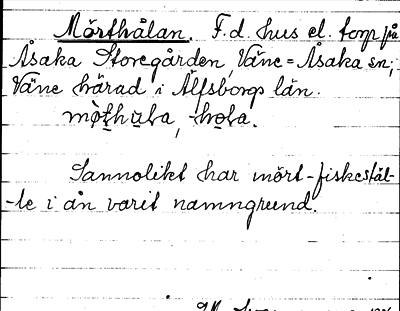 Mörthålan. F.d. hus el. torp på
Åsaka Storegården, Väne-Åsaka sn;
Väne härad i Älfsborgs län.
Sannolikt har mört-fiskestäl-
-le i ån varit namngrund.